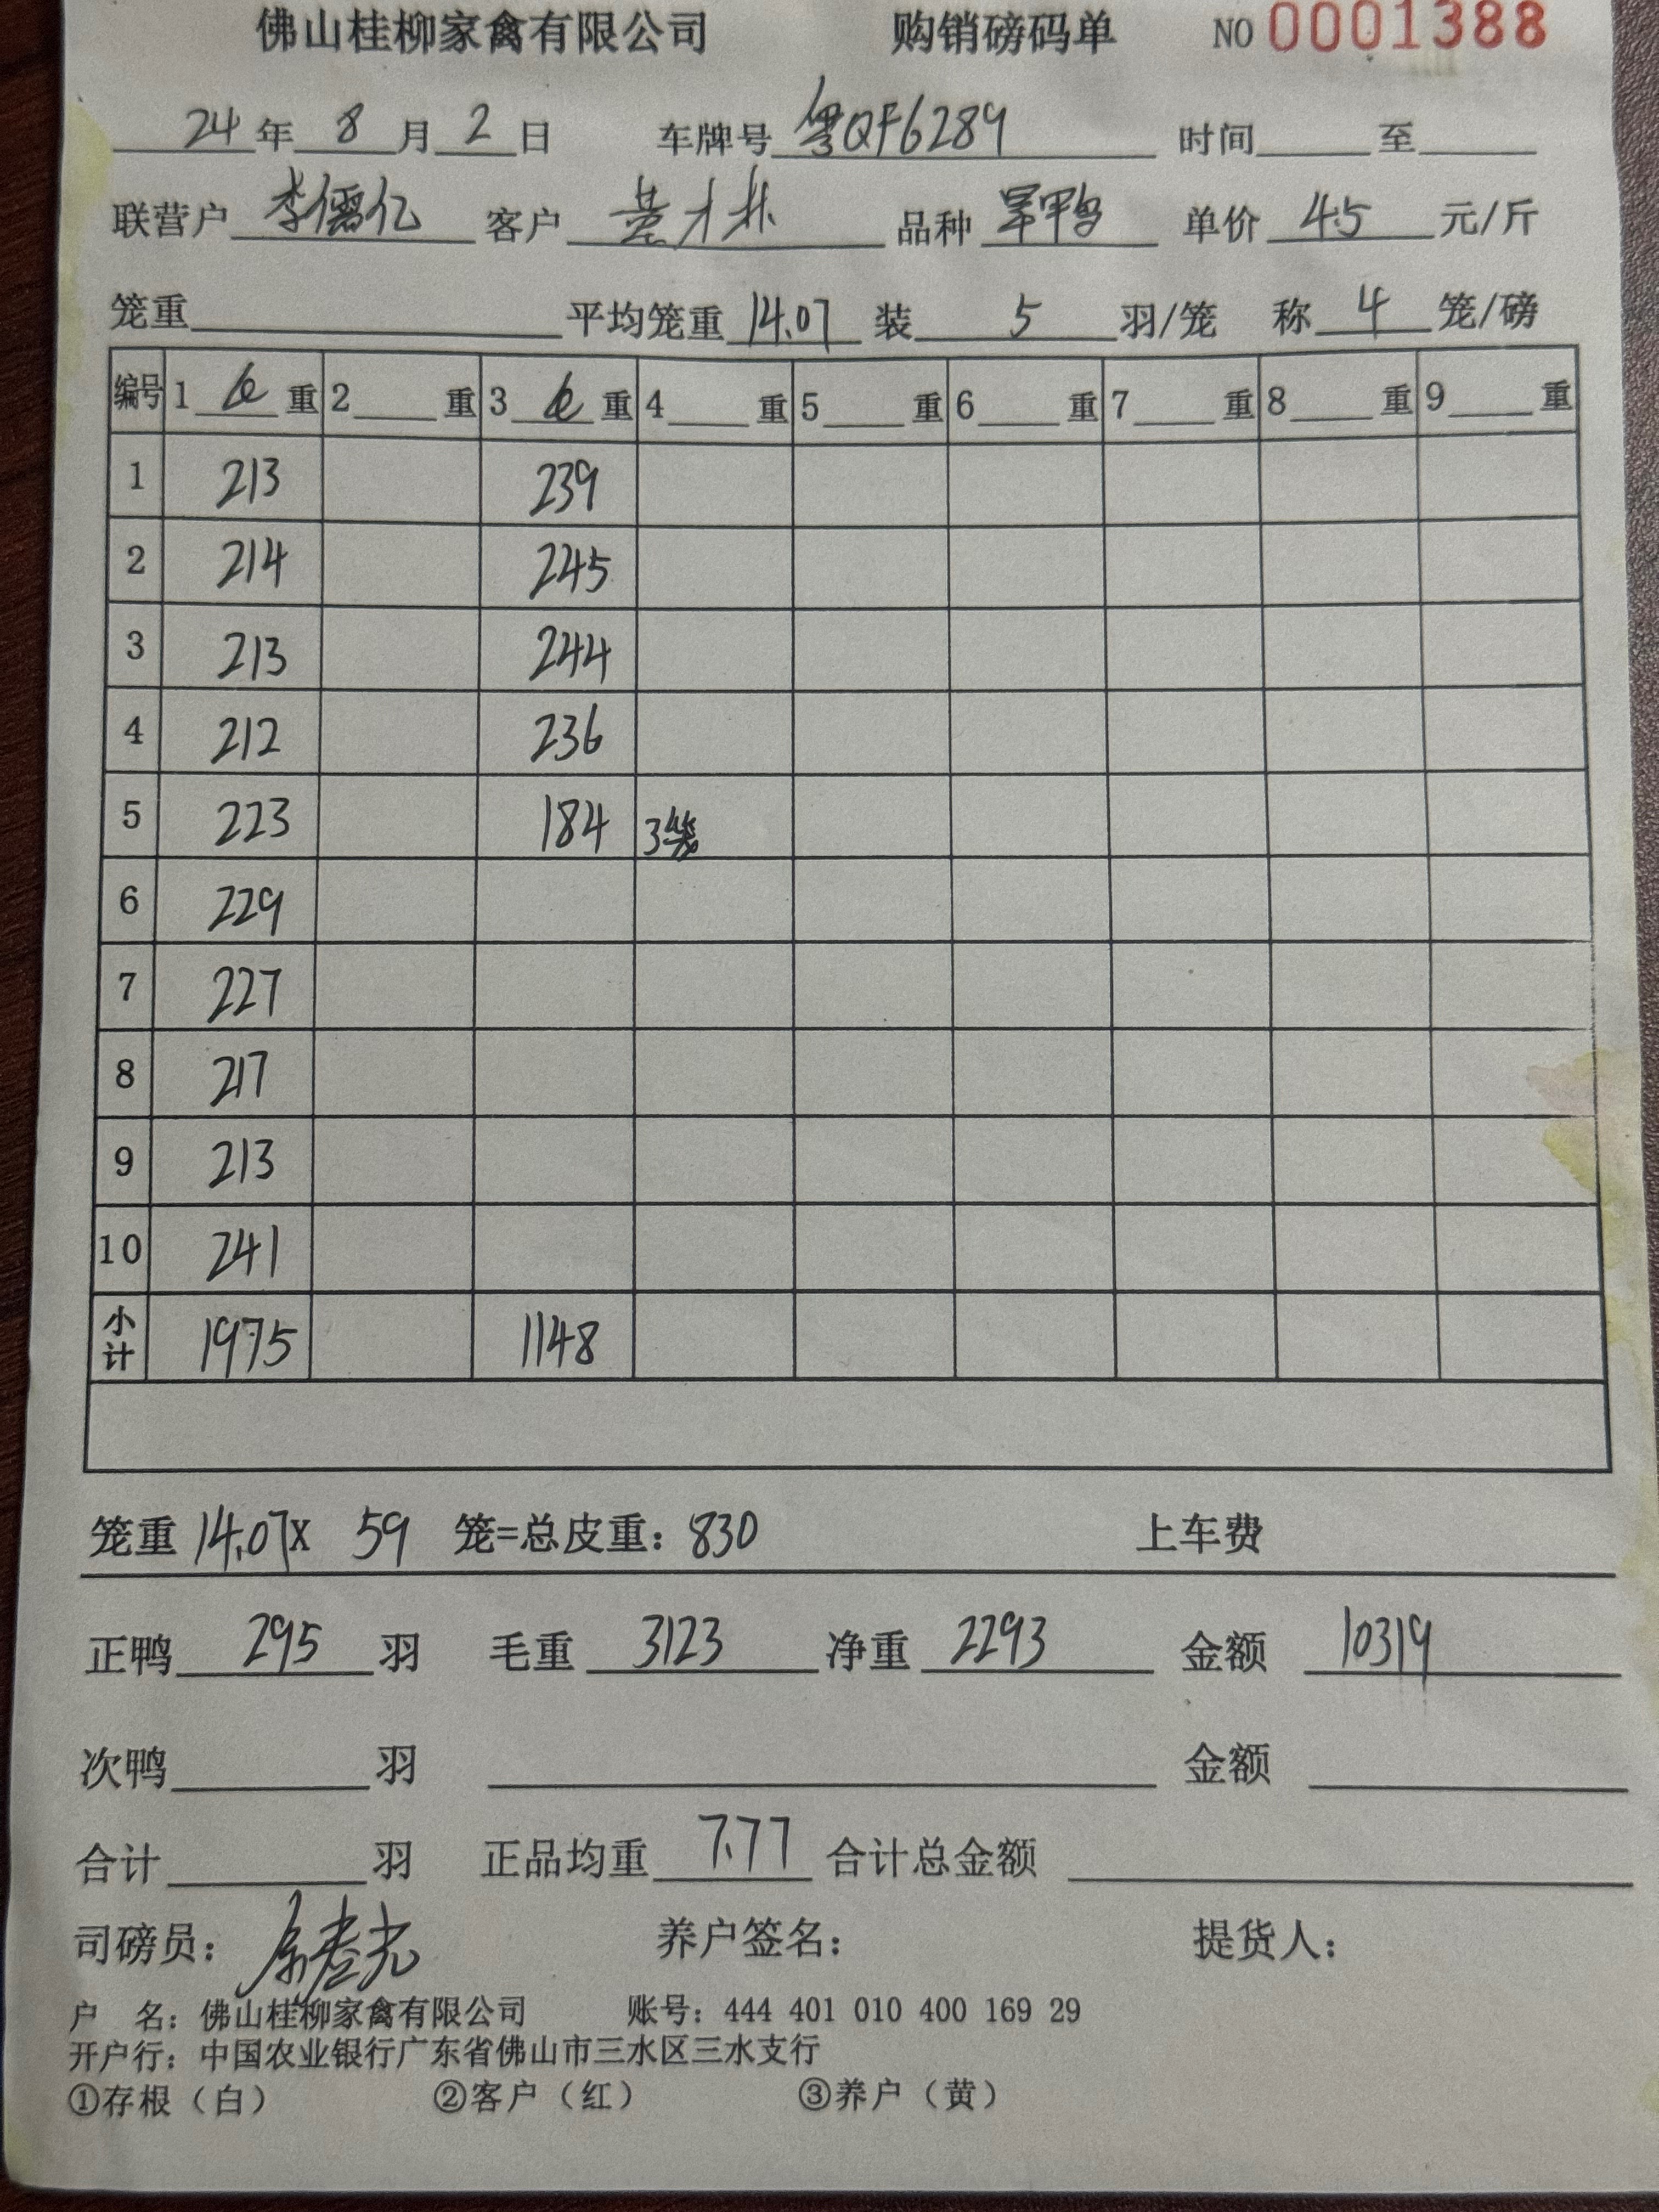 佛山桂柳家禽有限公司 购销磅码单 NO 0001388
24年 8月 2日 车牌号 粤QF6289 时间 至
联营户 李儒亿 客户 黄才林 品种 旱鸭 单价 4.5 元/斤
笼重 平均笼重 14.07 装 5 羽/笼 称 4 笼/磅
编号 1 重 2 重 3 重 4 重 5 重 6 重 7 重 8 重 9 重
1 213 239
2 214 245
3 213 244
4 212 236
5 223 184 3笼
6 229
7 227
8 217
9 213
10 241
小计 1975 1148
笼重 14.07 X 59 笼=总皮重：830 上车费
正鸭 295 羽 毛重 3123 净重 2293 金额 10319
次鸭 羽 金额
合计 羽 正品均重 7.77 合计总金额
司磅员： 养户签名： 提货人：
户 名：佛山桂柳家禽有限公司 账号：444 401 010 400 169 29
开户行：中国农业银行广东省佛山市三水区三水支行
①存根（白） ②客户（红） ③养户（黄）